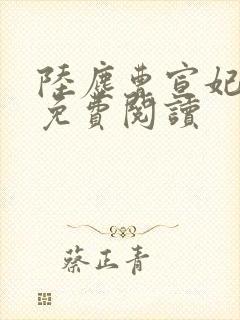 陸塵曹宣妃
免費閱讀
蔡正青